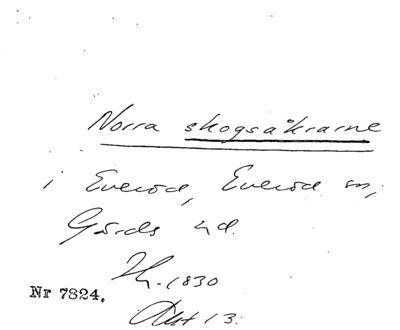 Norra skogsåkrarne
i Everöd, Everöd sn,
Gärds hd.
1830
Nr 7824.
Akt 13.